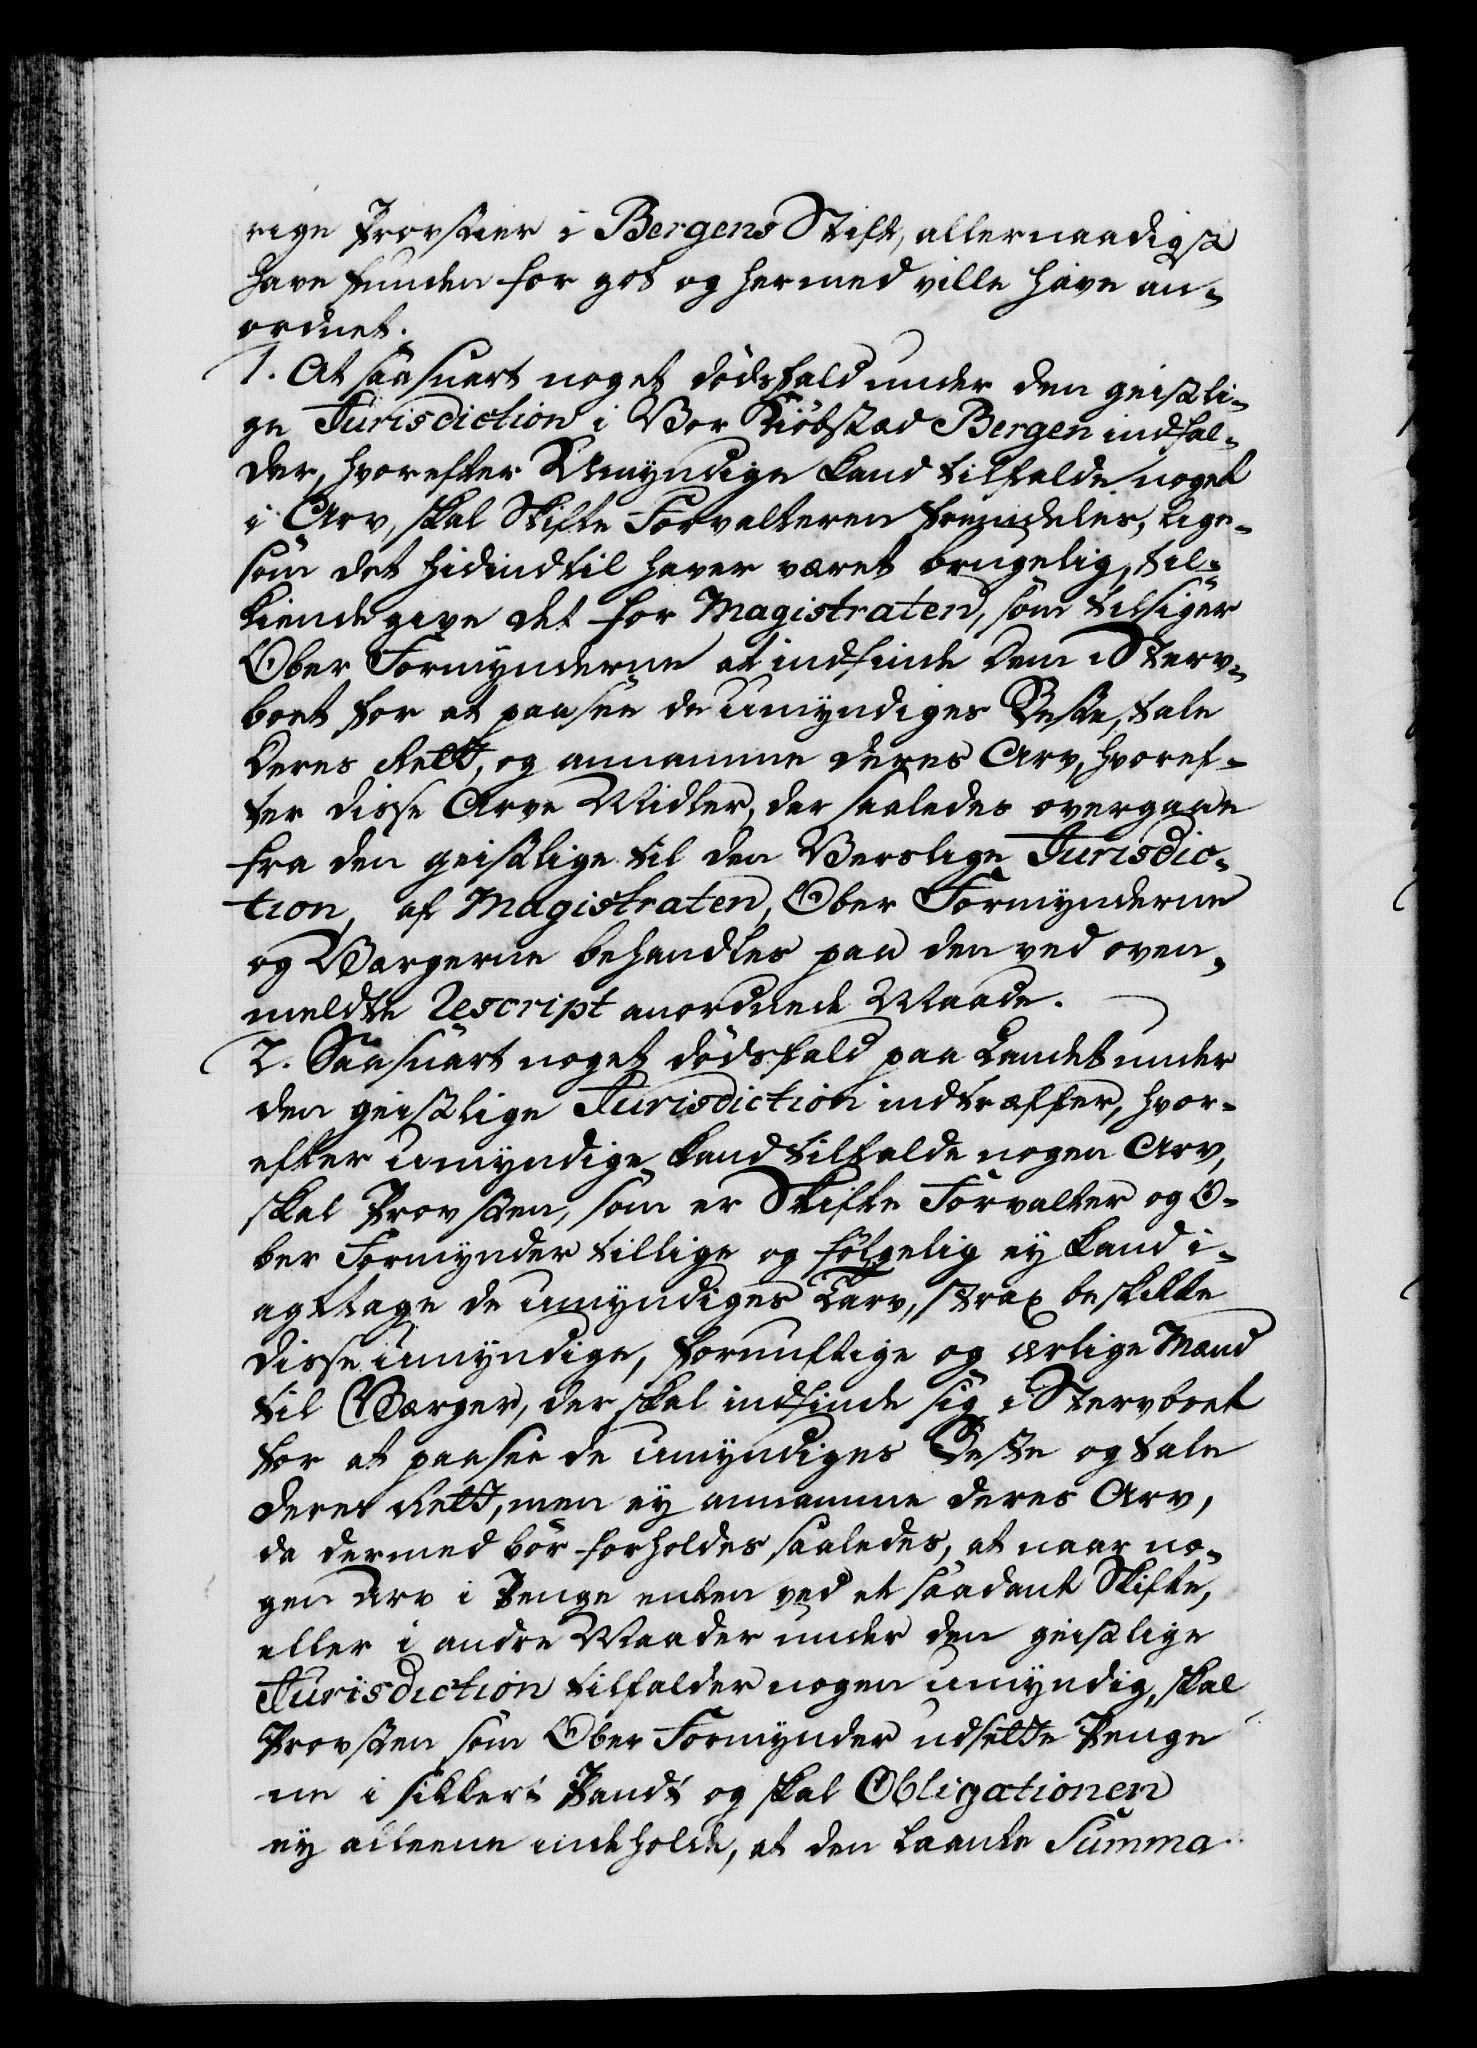 rige Provstier i Bergens Stift, allernaadigst
have funden for got og hermed ville have an-
ordnet.
1. At saasnart noget dödsfald under den geistli-
ge Jurisdiction i Vor Kiöbstad Bergen indfal-
der, hvorefter Umyndige kand tilfalde noget
i Arv, skal Skifte Forvalteren fremdeles, lige-
som det hidindtil haver været brugelig, til-
kiende give det for Magistraten, som tilsiger
Ober Formynderne at indfinde dem i Sterv-
boet for at paasee de umyndiges Beste, tale
deres Rett, og annamme deres Arv, hvoref-
ter disse Arve Midler, der saaledes overgaae
fra den geistlige til den Verslige Jurisdic-
tion, af Magistraten, Ober Formynderne
og Værgerne behandles paa den ved oven-
meldte Rescript anordnede Maade.
2. Saasnart noget dödsfald paa Landet under
den geistlige Jurisdiction indtræffer, hvor-
efter umyndige kand tilfalde nogen Arv,
skal Provsten, som er Skifte Forvalter og O-
ber Formynder tillige og fölgelig ey kand i-
agttage de umyndiges Tarv, strax beskikke
disse umyndige, fornuftige og ærlige Mænd
til Værger, der skal indfinde sig i Stervboet
for at paasee de umyndiges Beste og tale
deres Rett, men ey annamme deres Arv,
da dermed bör forholdes saaledes, at naar no-
gen Arv i Penge enten ved et saadant Skifte,
eller i andre Maader under den geistlige
Jurisdiction tilfalder nogen umyndig, skal
Provsten som Ober Formynder udsette Penge
ne i sikkert Pandt og skal Obligationen
ey alleene indeholde, at den laante Summa